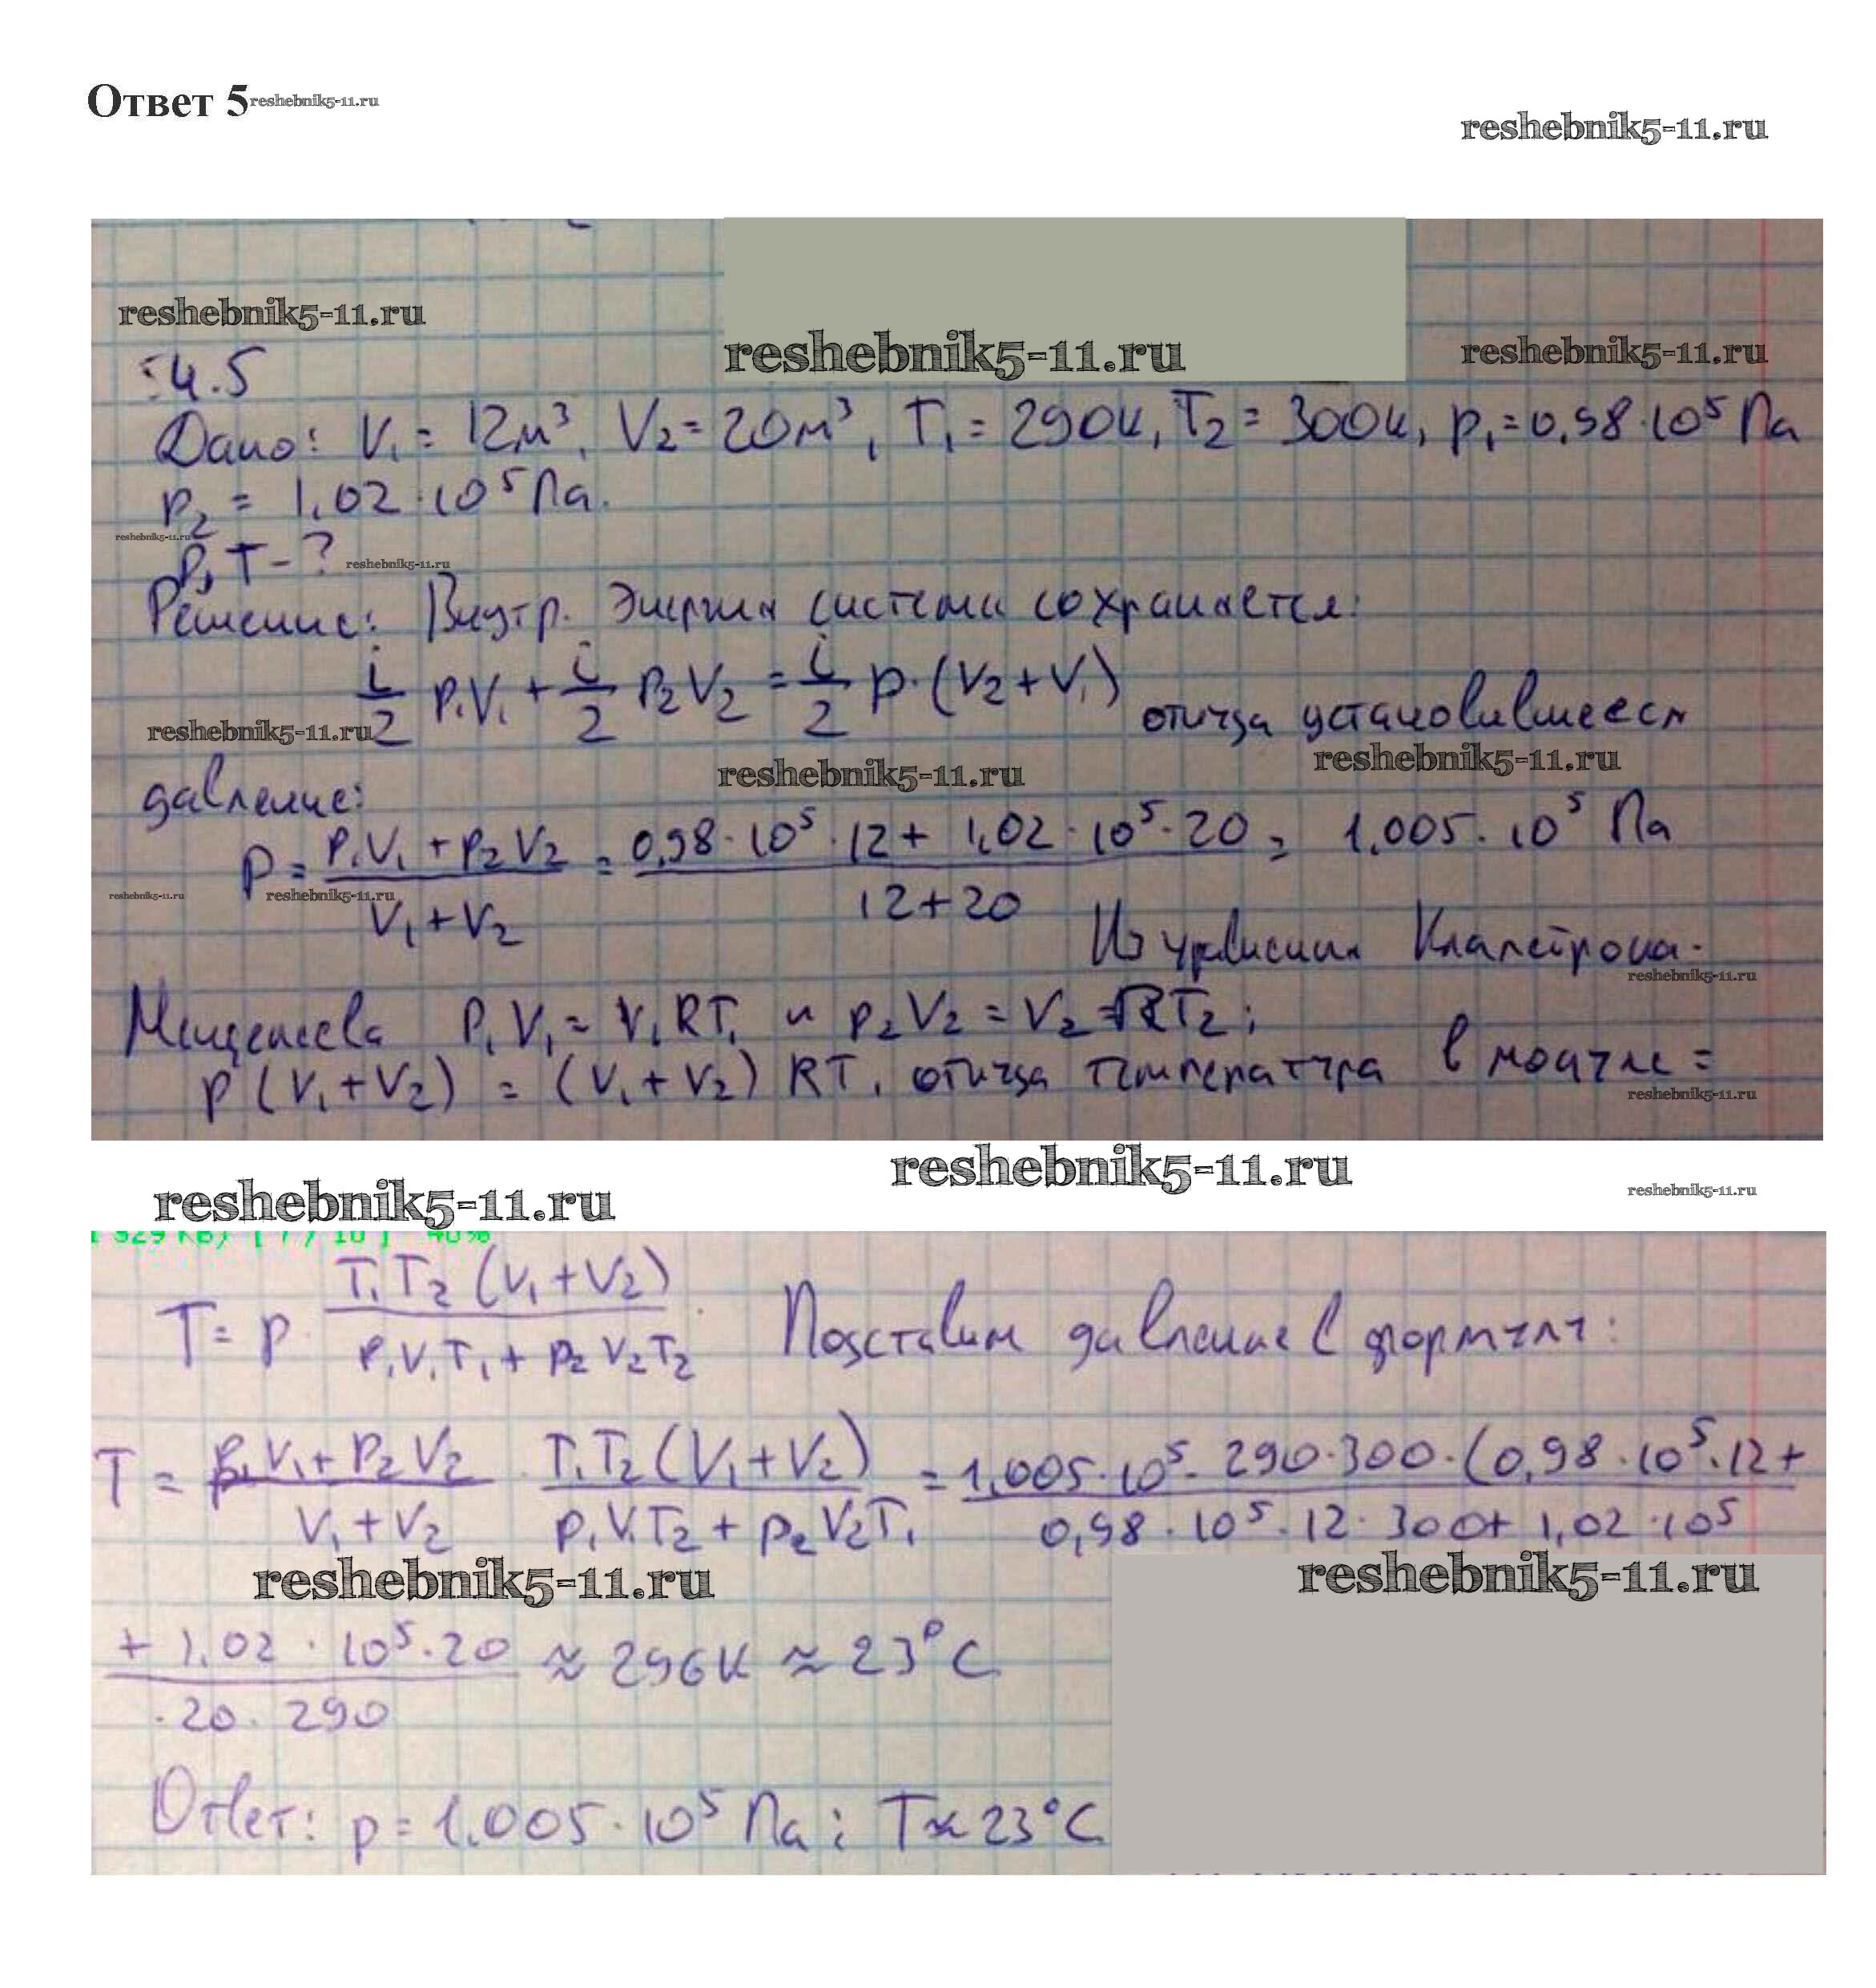 Ответ 5 reshebnik5-11.ru
reshebnik5-11.ru
reshebnik5-11.ru
reshebnik5-11.ru
reshebnik5-11.ru
:4.5
Дано: V₁ = 12м³, V₂ = 20м³, T₁ = 290К, T₂ = 300К, p₁ = 0,98·10⁵ Па
p₂ = 1,02·10⁵ Па.
reshebnik5-11.ru
p, T - ? reshebnik5-11.ru
Решение: Внутр. энергия система сохраняется:
i/2 p₁V₁ + i/2 p₂V₂ = i/2 p·(V₂+V₁) откуда установившееся
reshebnik5-11.ru
reshebnik5-11.ru
reshebnik5-11.ru
давление:
p = (p₁V₁ + p₂V₂)/(V₁+V₂) = (0,98·10⁵·12 + 1,02·10⁵·20)/(12+20) = 1,005·10⁵ Па
reshebnik5-11.ru
reshebnik5-11.ru
Из уравнения Клапейрона-
reshebnik5-11.ru
Менделеева p₁V₁ = ν₁RT₁ и p₂V₂ = ν₂RT₂;
p(V₁+V₂) = (ν₁+ν₂)RT, откуда температура в =
reshebnik5-11.ru
reshebnik5-11.ru
reshebnik5-11.ru
reshebnik5-11.ru
[7/10] 40%
T = p · T₁T₂(V₁+V₂)/(p₁V₁T₁ + p₂V₂T₂). Подставим давление в формулу:
T = (p₁V₁ + p₂V₂)/(V₁+V₂) · T₁T₂(V₁+V₂)/(p₁V₁T₂ + p₂V₂T₁) = 1,005·10⁵·290·300·(0,98·10⁵·12 + / 0,98·10⁵·12·300 + 1,02·10⁵
reshebnik5-11.ru
reshebnik5-11.ru
+ 1,02·10⁵·20 / ·20·290 ≈ 296К ≈ 23°C
Ответ: p = 1,005·10⁵ Па; T ≈ 23°C